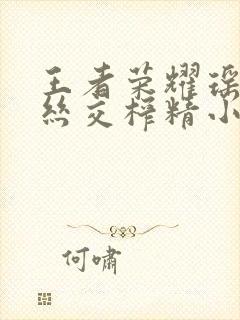 王者荣耀瑶
丝交榨精小
何啸